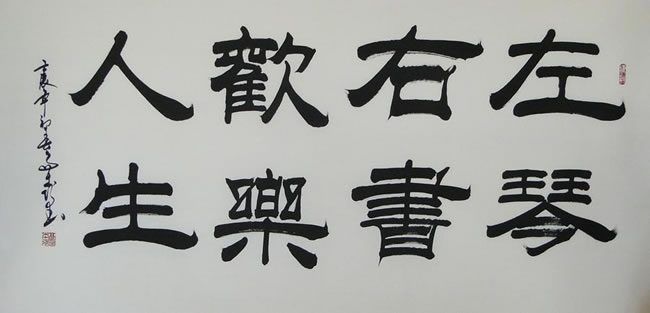 左琴
右書
歡樂
人生